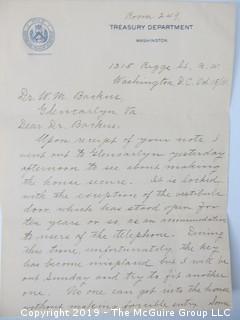 Room 249
TREASURY DEPARTMENT
WASHINGTON
1318 Riggs St. N.W.
Washington, D.C. Oct 19/15
Dr. W. M. Backus,
Glencarlyn Va
Dear Dr. Backus:
Upon receipt of your note I
went out to Glencarlyn yesterday
afternoon to see about making
the house secure. It is locked
with the exception of the vestibule
door which has stood open for
ten years or so as an accommodation
to users of the telephone. During
this time, unfortunately, the key
has become misplaced but I will be
out Sunday and try to fit another
one. No one can get into the house
without making forcible entry. Some
Copyright 2019 - The McGuire Group